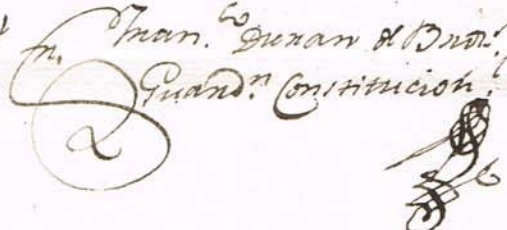 Fr. Fran.co Duran de
Guard.n Constitucion.l